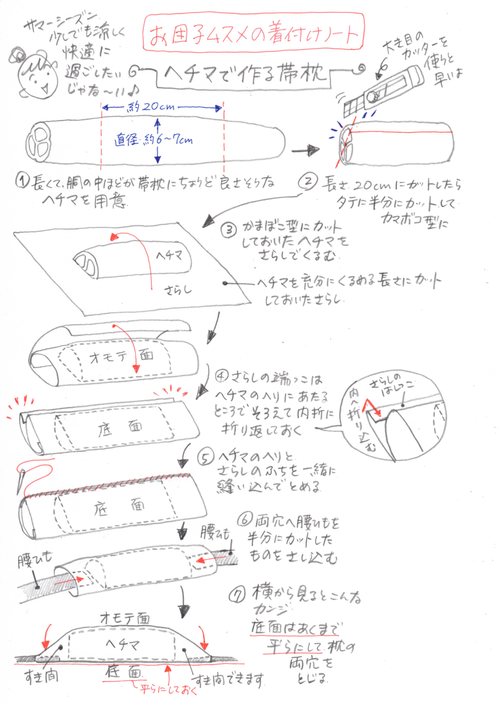 お団子ムスメの着付けノート
サマーシーズン
少しでも涼しく
快適に
過ごしたい
じゃな〜い♪
ヘチマで作る帯枕
大き目の
カッターを
使うと
早いよ
約20cm
直径 約6〜7cm
① 長くて、胴の中ほどが帯枕にちょうど良さそうな
ヘチマを用意
② 長さ20cmにカットしたら
タテに半分にカットして
カマボコ型に
③ かまぼこ型にカット
しておいたヘチマを
さらしでくるむ
ヘチマ
さらし
ヘチマを充分にくるめる長さにカット
しておいたさらし
オモテ面
④ さらしの端っこは
ヘチマのヘリにあたる
ところでそろえて内折に
折り返しておく
底面
さらしの
はしっこ
内へ折り込む
⑤ ヘチマのヘリと
さらしのふちを一緒に
縫い込んでとめる
底面
⑥ 両穴へ腰ひもを
半分にカットした
ものをさし込む
腰ひも
腰ひも
⑦ 横から見るとこんな
カンジ
底面はあくまで
平らにして枕の
両穴を
とじる
オモテ面
ヘチマ
すき間
底面
平らにしておく
すき間できます